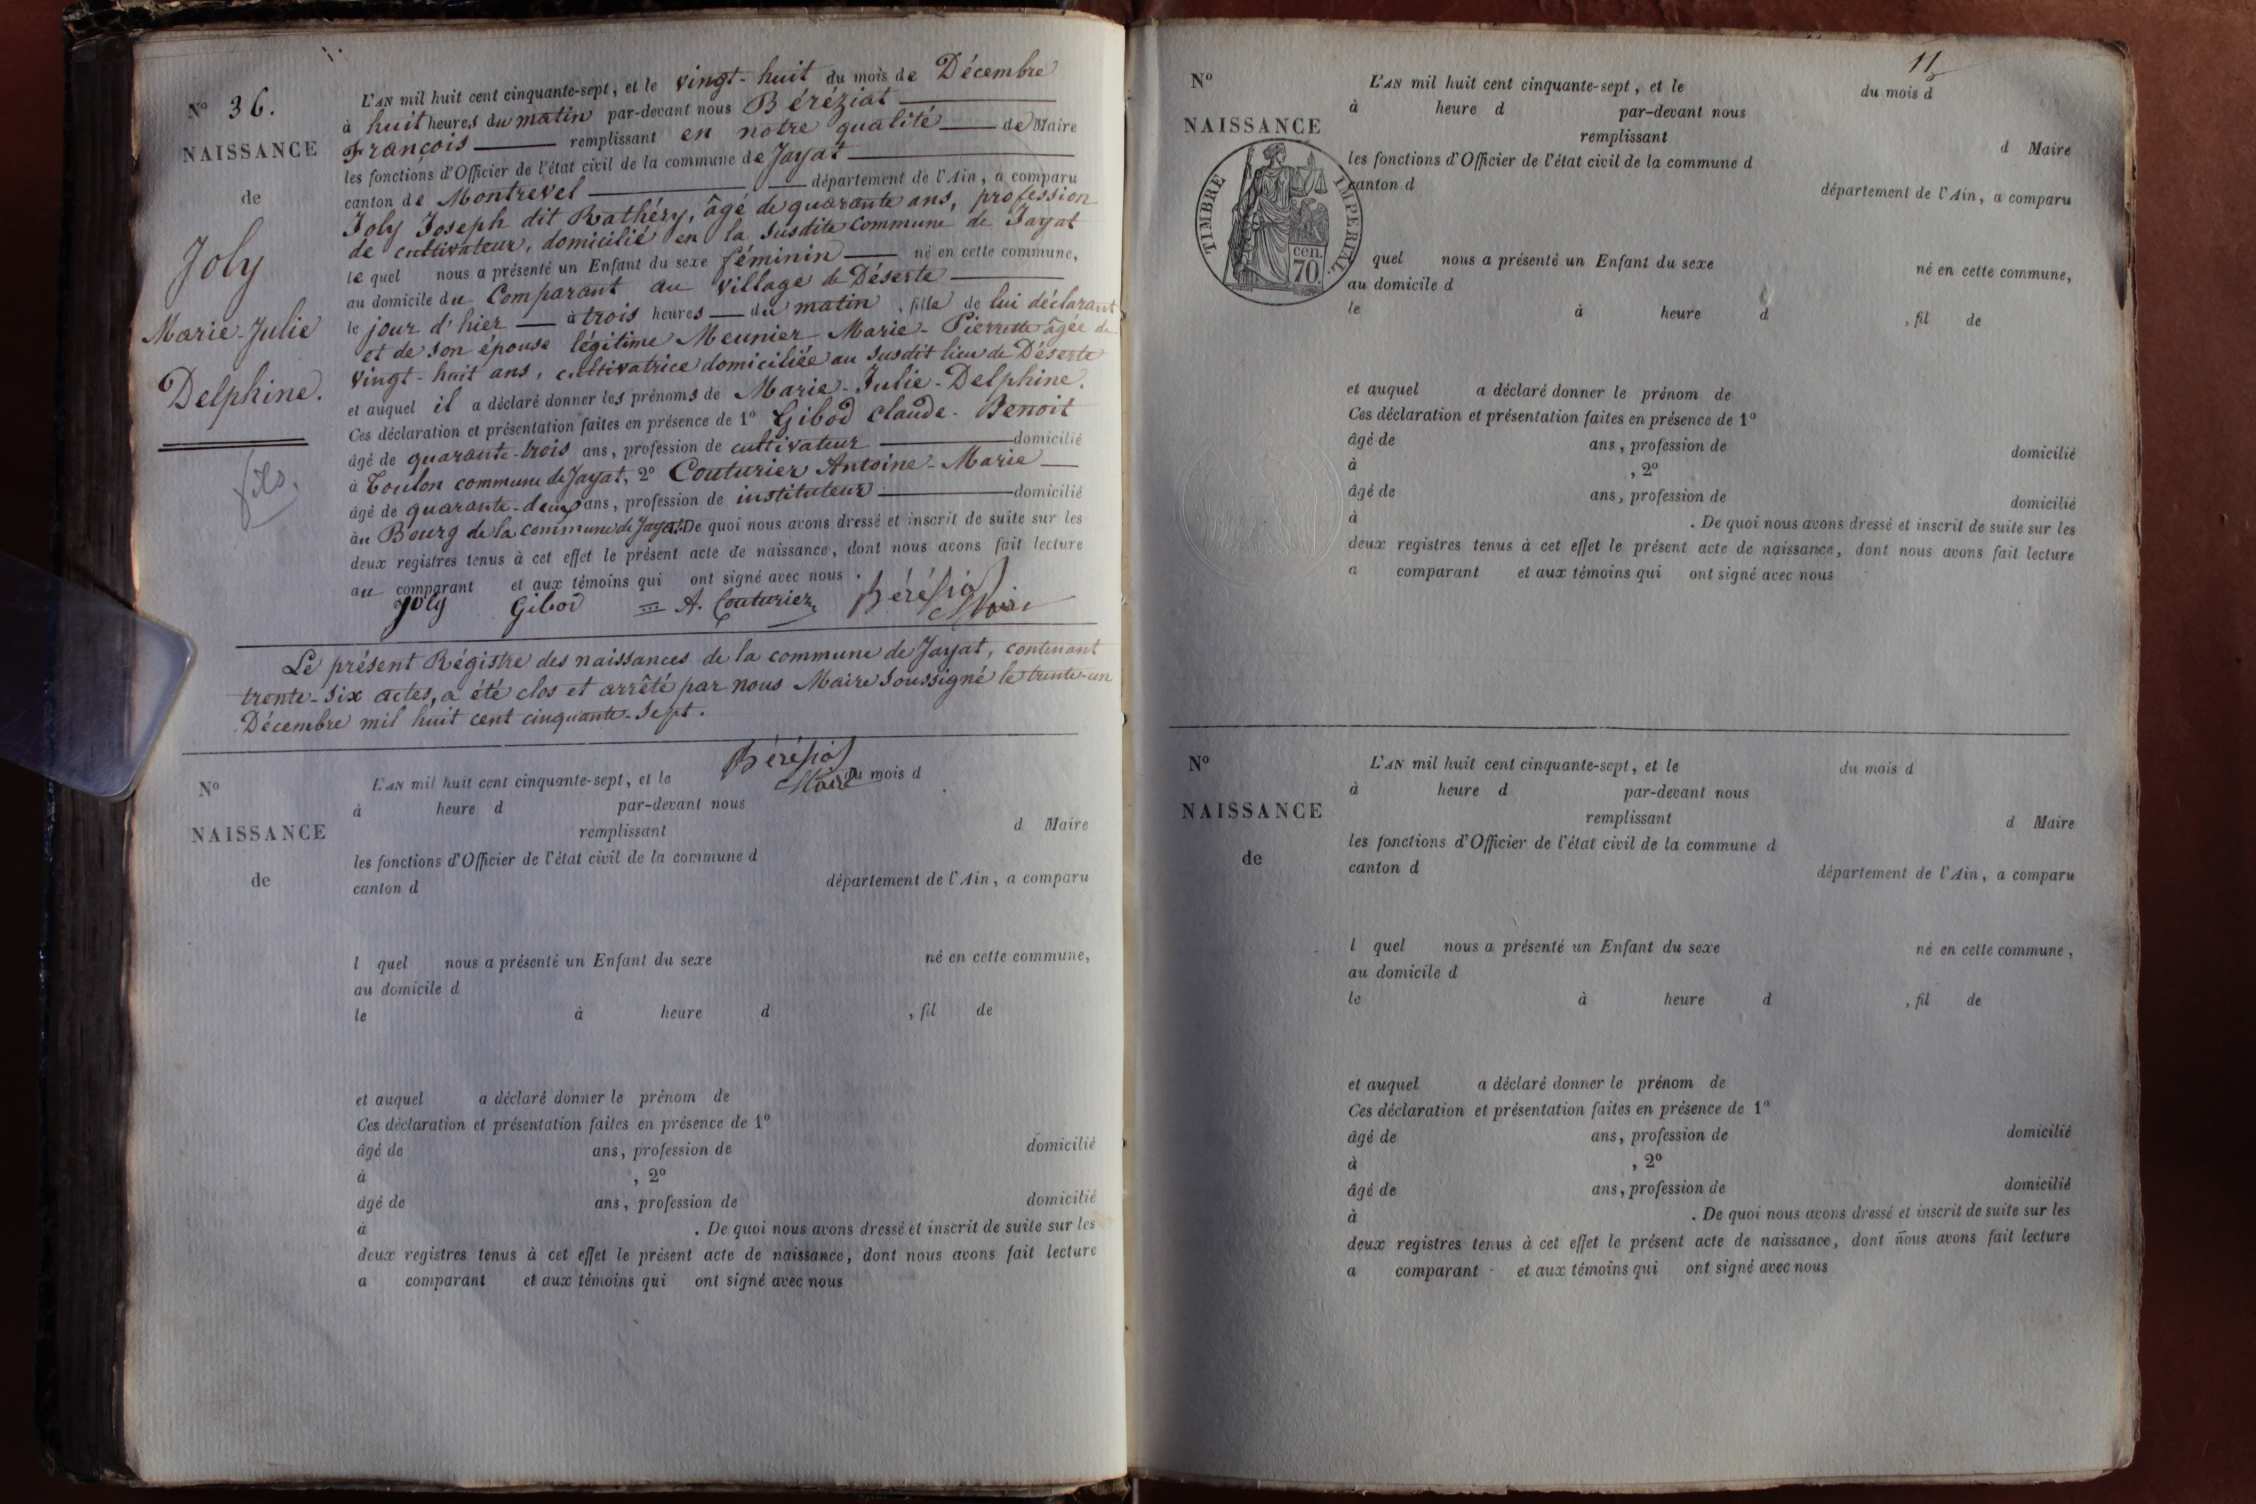 N° 36.
NAISSANCE
de
Joly
Marie-Julie
Delphine.
fils.
L'AN mil huit cent cinquante-sept, et le vingt-huit du mois de Décembre
à huit heures du matin par-devant nous Béréziat
François remplissant en notre qualité de Maire
les fonctions d'Officier de l'état civil de la commune de Jayat
canton de Montrevel département de l'Ain, a comparu
Joly Joseph dit Rathéry, âgé de quarante ans, profession
de cultivateur, domicilié en la susdite commune de Jayat
le quel nous a présenté un Enfant du sexe féminin né en cette commune,
au domicile du Comparant au village de Déserte
le jour d'hier à trois heures du matin, fille de lui déclarant
et de son épouse légitime Meunier Marie-Pierrette âgée de
vingt-huit ans, cultivatrice domiciliée au susdit lieu de Déserte
et auquel il a déclaré donner les prénoms de Marie-Julie-Delphine.
Ces déclaration et présentation faites en présence de 1° Gibod Claude-Benoit
âgé de quarante-trois ans, profession de cultivateur domicilié
à Toulon commune de Jayat, 2° Couturier Antoine-Marie
âgé de quarante-deux ans, profession de instituteur domicilié
au Bourg de la commune de Jayat. De quoi nous avons dressé et inscrit de suite sur les
deux registres tenus à cet effet le présent acte de naissance, dont nous avons fait lecture
au comparant et aux témoins qui ont signé avec nous.
Joly Gibod A. Couturier Béréziat
Maire
Le présent Régistre des naissances de la commune de Jayat, contenant
trente-six actes, a été clos et arrêté par nous Maire soussigné le trente-un
Décembre mil huit cent cinquante-sept.
Béréziat
Maire
N°
NAISSANCE
de
L'AN mil huit cent cinquante-sept, et le du mois d
à heure d par-devant nous
remplissant d Maire
les fonctions d'Officier de l'état civil de la commune d
canton d département de l'Ain, a comparu
l quel nous a présenté un Enfant du sexe né en cette commune,
au domicile d
le à heure d , fil de
et auquel a déclaré donner le prénom de
Ces déclaration et présentation faites en présence de 1°
âgé de ans, profession de domicilié
à , 2°
âgé de ans, profession de domicilié
à . De quoi nous avons dressé et inscrit de suite sur les
deux registres tenus à cet effet le présent acte de naissance, dont nous avons fait lecture
a comparant et aux témoins qui ont signé avec nous
11
N°
NAISSANCE
TIMBRE IMPERIAL
cen.
70.
L'AN mil huit cent cinquante-sept, et le du mois d
à heure d par-devant nous
remplissant d Maire
les fonctions d'Officier de l'état civil de la commune d
canton d département de l'Ain, a comparu
quel nous a présenté un Enfant du sexe né en cette commune,
au domicile d
le à heure d , fil de
et auquel a déclaré donner le prénom de
Ces déclaration et présentation faites en présence de 1°
âgé de ans, profession de domicilié
à , 2°
âgé de ans, profession de domicilié
à . De quoi nous avons dressé et inscrit de suite sur les
deux registres tenus à cet effet le présent acte de naissance, dont nous avons fait lecture
a comparant et aux témoins qui ont signé avec nous
N°
NAISSANCE
de
L'AN mil huit cent cinquante-sept, et le du mois d
à heure d par-devant nous
remplissant d Maire
les fonctions d'Officier de l'état civil de la commune d
canton d département de l'Ain, a comparu
l quel nous a présenté un Enfant du sexe né en cette commune,
au domicile d
le à heure d , fil de
et auquel a déclaré donner le prénom de
Ces déclaration et présentation faites en présence de 1°
âgé de ans, profession de domicilié
à , 2°
âgé de ans, profession de domicilié
à . De quoi nous avons dressé et inscrit de suite sur les
deux registres tenus à cet effet le présent acte de naissance, dont nous avons fait lecture
a comparant et aux témoins qui ont signé avec nous